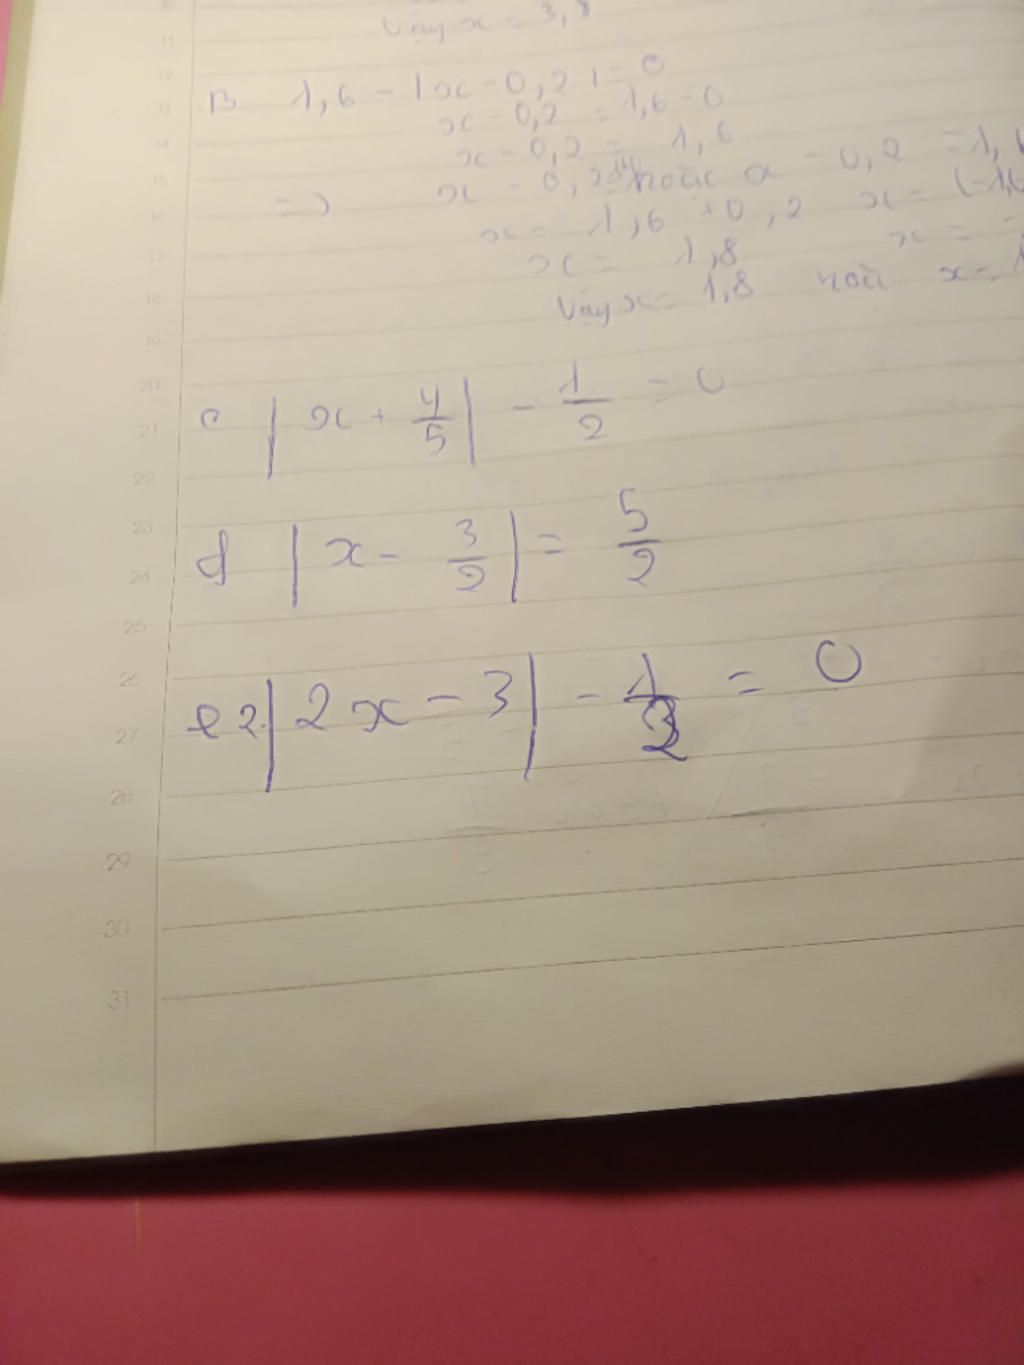 10
Vậy x = 3,8
11
12
B 1,6 - |x - 0,2| = 0
13
x - 0,2 = 1,6 - 0
14
x - 0,2 = 1,6
15
=> x - 0,2 hoặc x - 0,2 = 1,
16
x = 1,6 + 0,2 x = (-1,6
17
x = 1,8 x = -
18
Vậy x = 1,8 hoặc x =
19
20
c |x + 4/5| - 1/2 = 0
21
22
23
d |x - 3/2| = 5/2
24
25
26
e 2|2x - 3| - 1/2 = 0
27
28
29
30
31